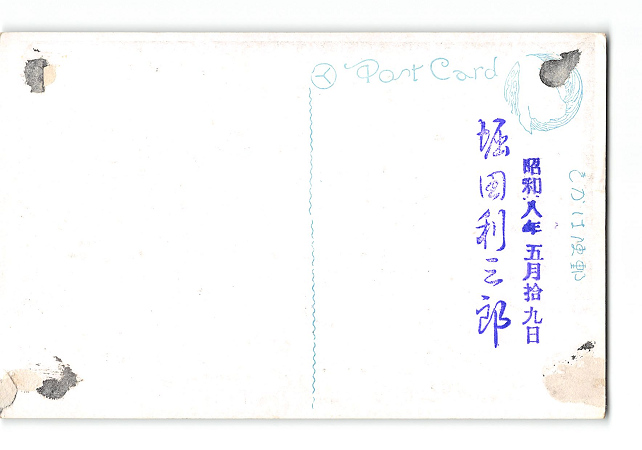 Post Card
郵便はがき
昭和八年五月拾九日
堀國利三郎